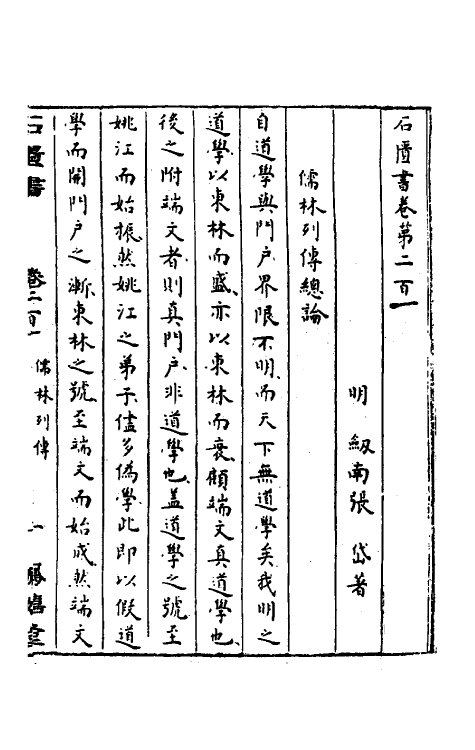 石匱書卷第二百一
明 劔南張 岱著
儒林列傳總論
自道學與門戶界限不明而天下無道學矣我明之
道學以東林而盛亦以東林而衰顧端文真道學也
後之附端文者則真門戶非道學也蓋道學之號至
姚江而始振然姚江之弟子儘多偽學此即以假道
學而開門戶之漸東林之號至端文而始成然端文
石匱書 卷二百一 儒林列傳 一 鳳嬉堂